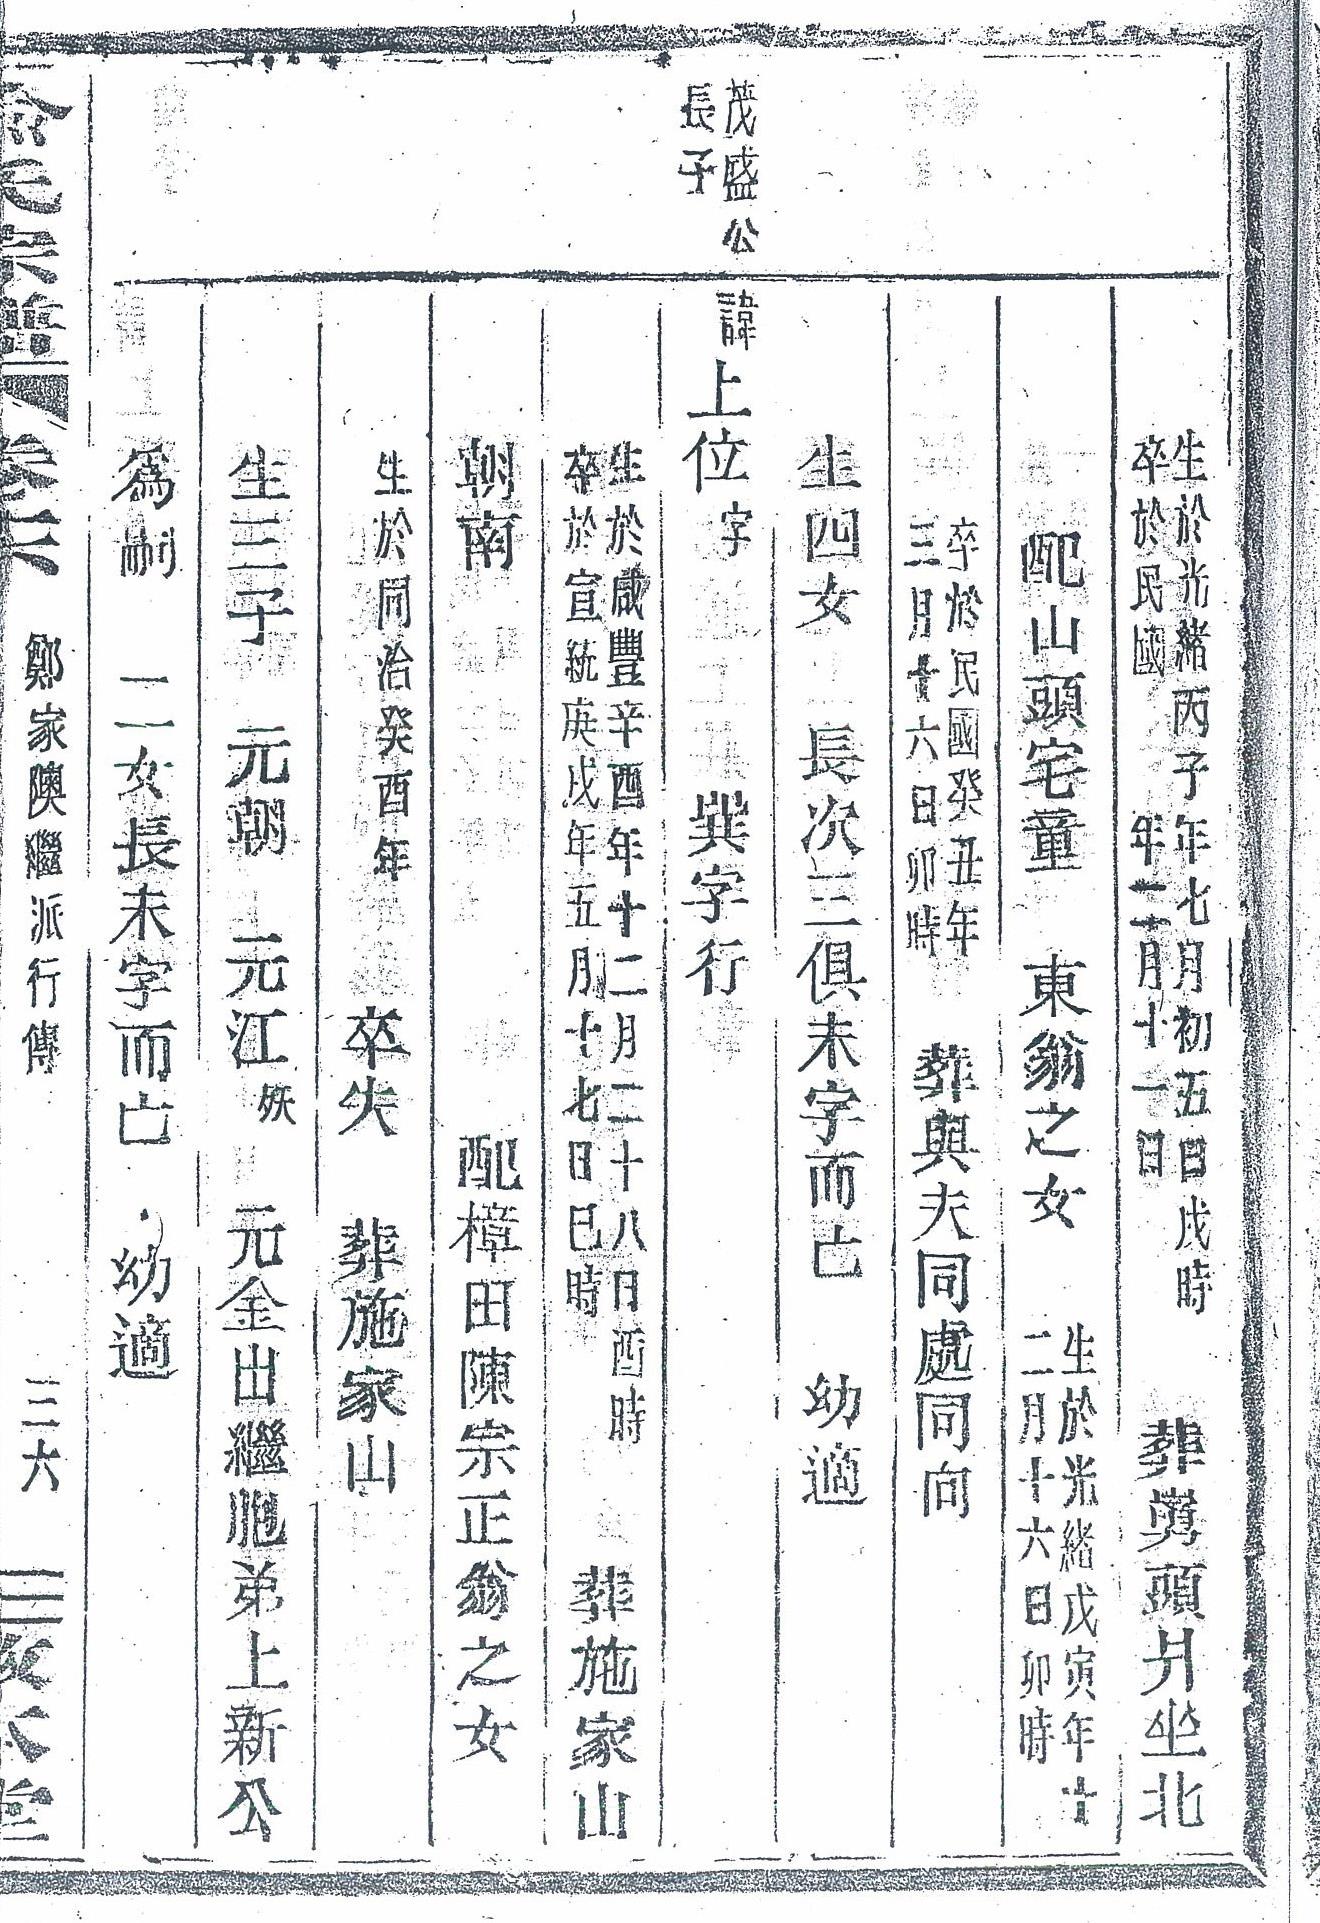 生於光緒丙子年七月初五日戌時
卒於民國 年二月十一日
葬剪頭爿坐北
配山頭宅童 東翁之女
生於光緒戊寅年十
二月十六日卯時
卒於民國癸丑年
三月十六日卯時
葬與夫同處同向
生四女 長次三俱未字而亡 幼適
茂盛公
長子
諱上位字 巽字行
生於咸豐辛酉年十二月二十八日酉時
卒於宣統庚戌年五月十七日巳時
葬施家山
朝南 配樟田陳宗正翁之女
生於同治癸酉年 卒失 葬施家山
生三子 元朝 元江殀 元金出繼胞弟上新公
為嗣 二女長未字而亡 幼適
氏宗譜 卷六 鄭家隩繼派行傳 三六 堂